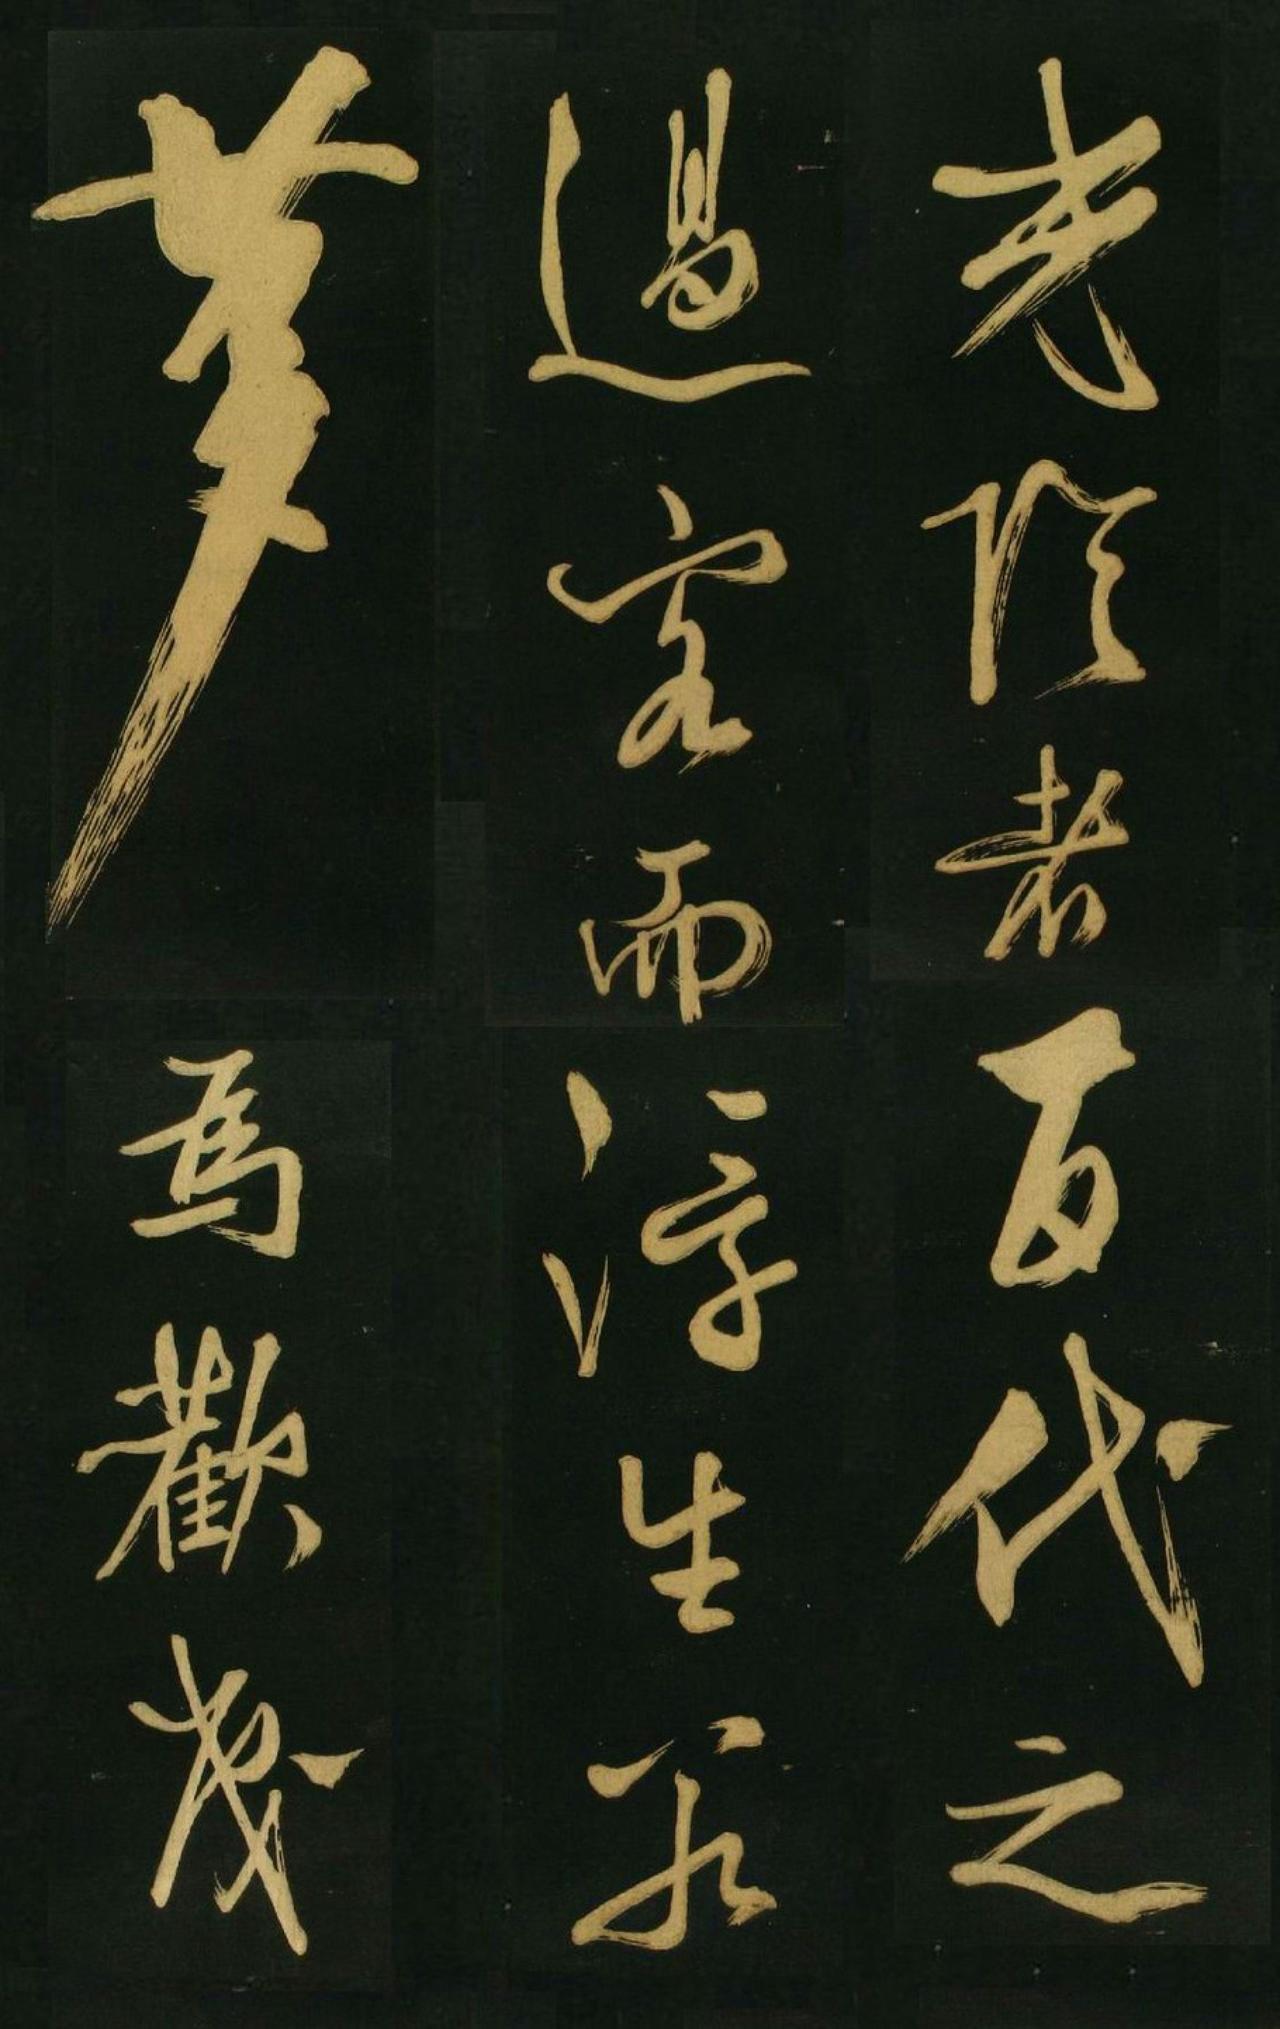 光陰者百代之
過客而浮生若
夢為歡幾